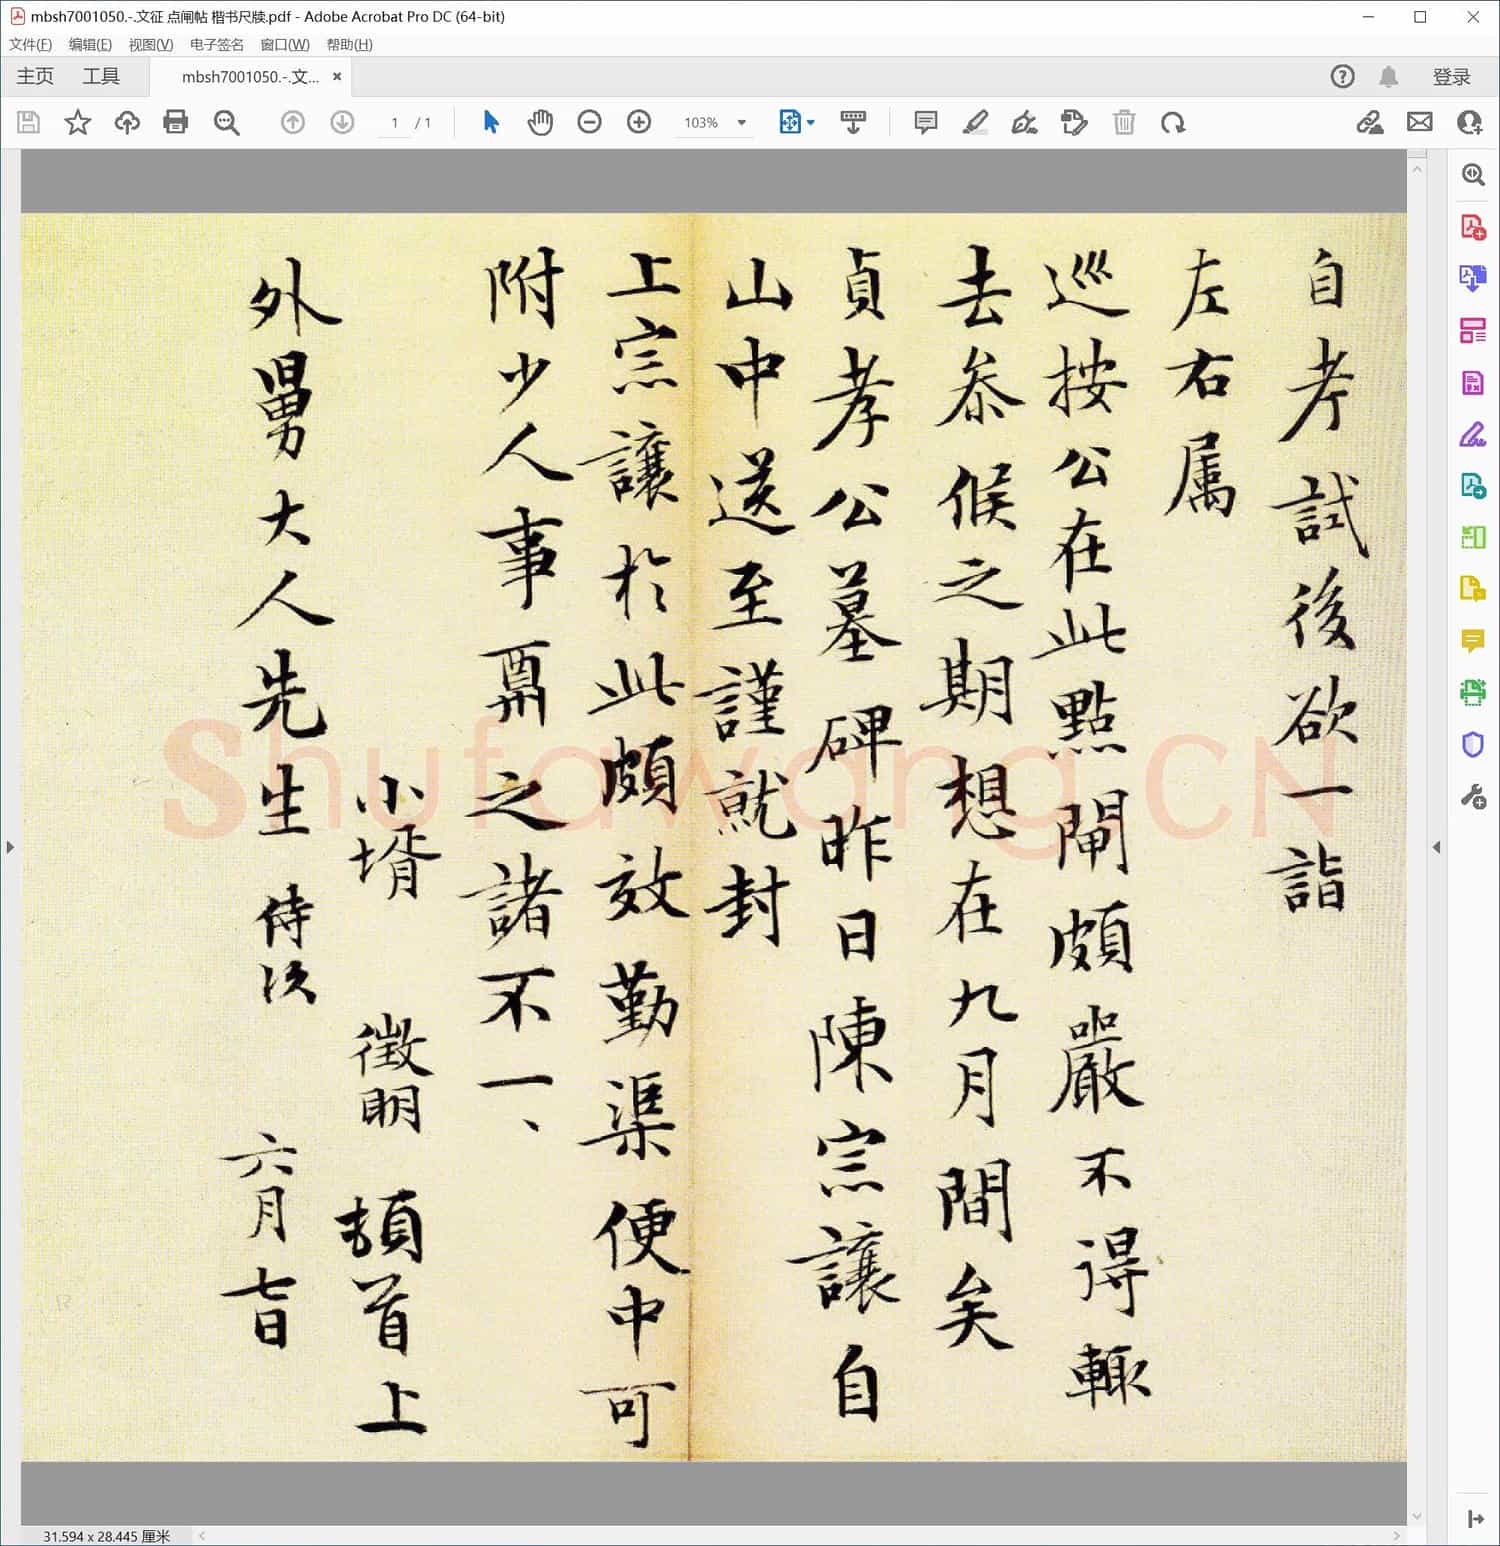 mbsh7001050.-.文征 点闸帖 楷书尺牍.pdf - Adobe Acrobat Pro DC (64-bit)
文件(F) 编辑(E) 视图(V) 电子签名 窗口(W) 帮助(H)
主页 工具 mbsh7001050.-.文... × 登录
1 / 1 103%
自考試後欲一詣
左右属
巡按公在此點閘頗嚴不得輙
去叅候之期想在九月間矣
貞孝公墓碑昨日陳宗讓自
山中送至謹就封
上宗讓於此頗效勤渠便中可
附少人事齎之諸不一、
小壻 徵明 頓首上
外舅大人先生 侍次 六月七日
Shufawang.CN
31.594 x 28.445 厘米